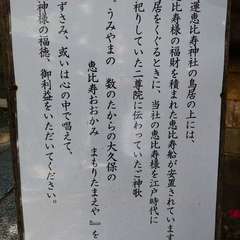 運恵比寿神社の鳥居の上には、
恵比寿様の福財を積まれた恵比寿船が安置されています
鳥居をくぐると、当社の恵比寿様を江戸時代に
祀りしていた二尊院に伝わっていたご神歌
うみやまの 数のたからの大久保の
恵比寿おおかみ まもりたまえや』を
ずさみ、或いは心の中で唱えて、
神様の福徳、御利益をいただいてください。